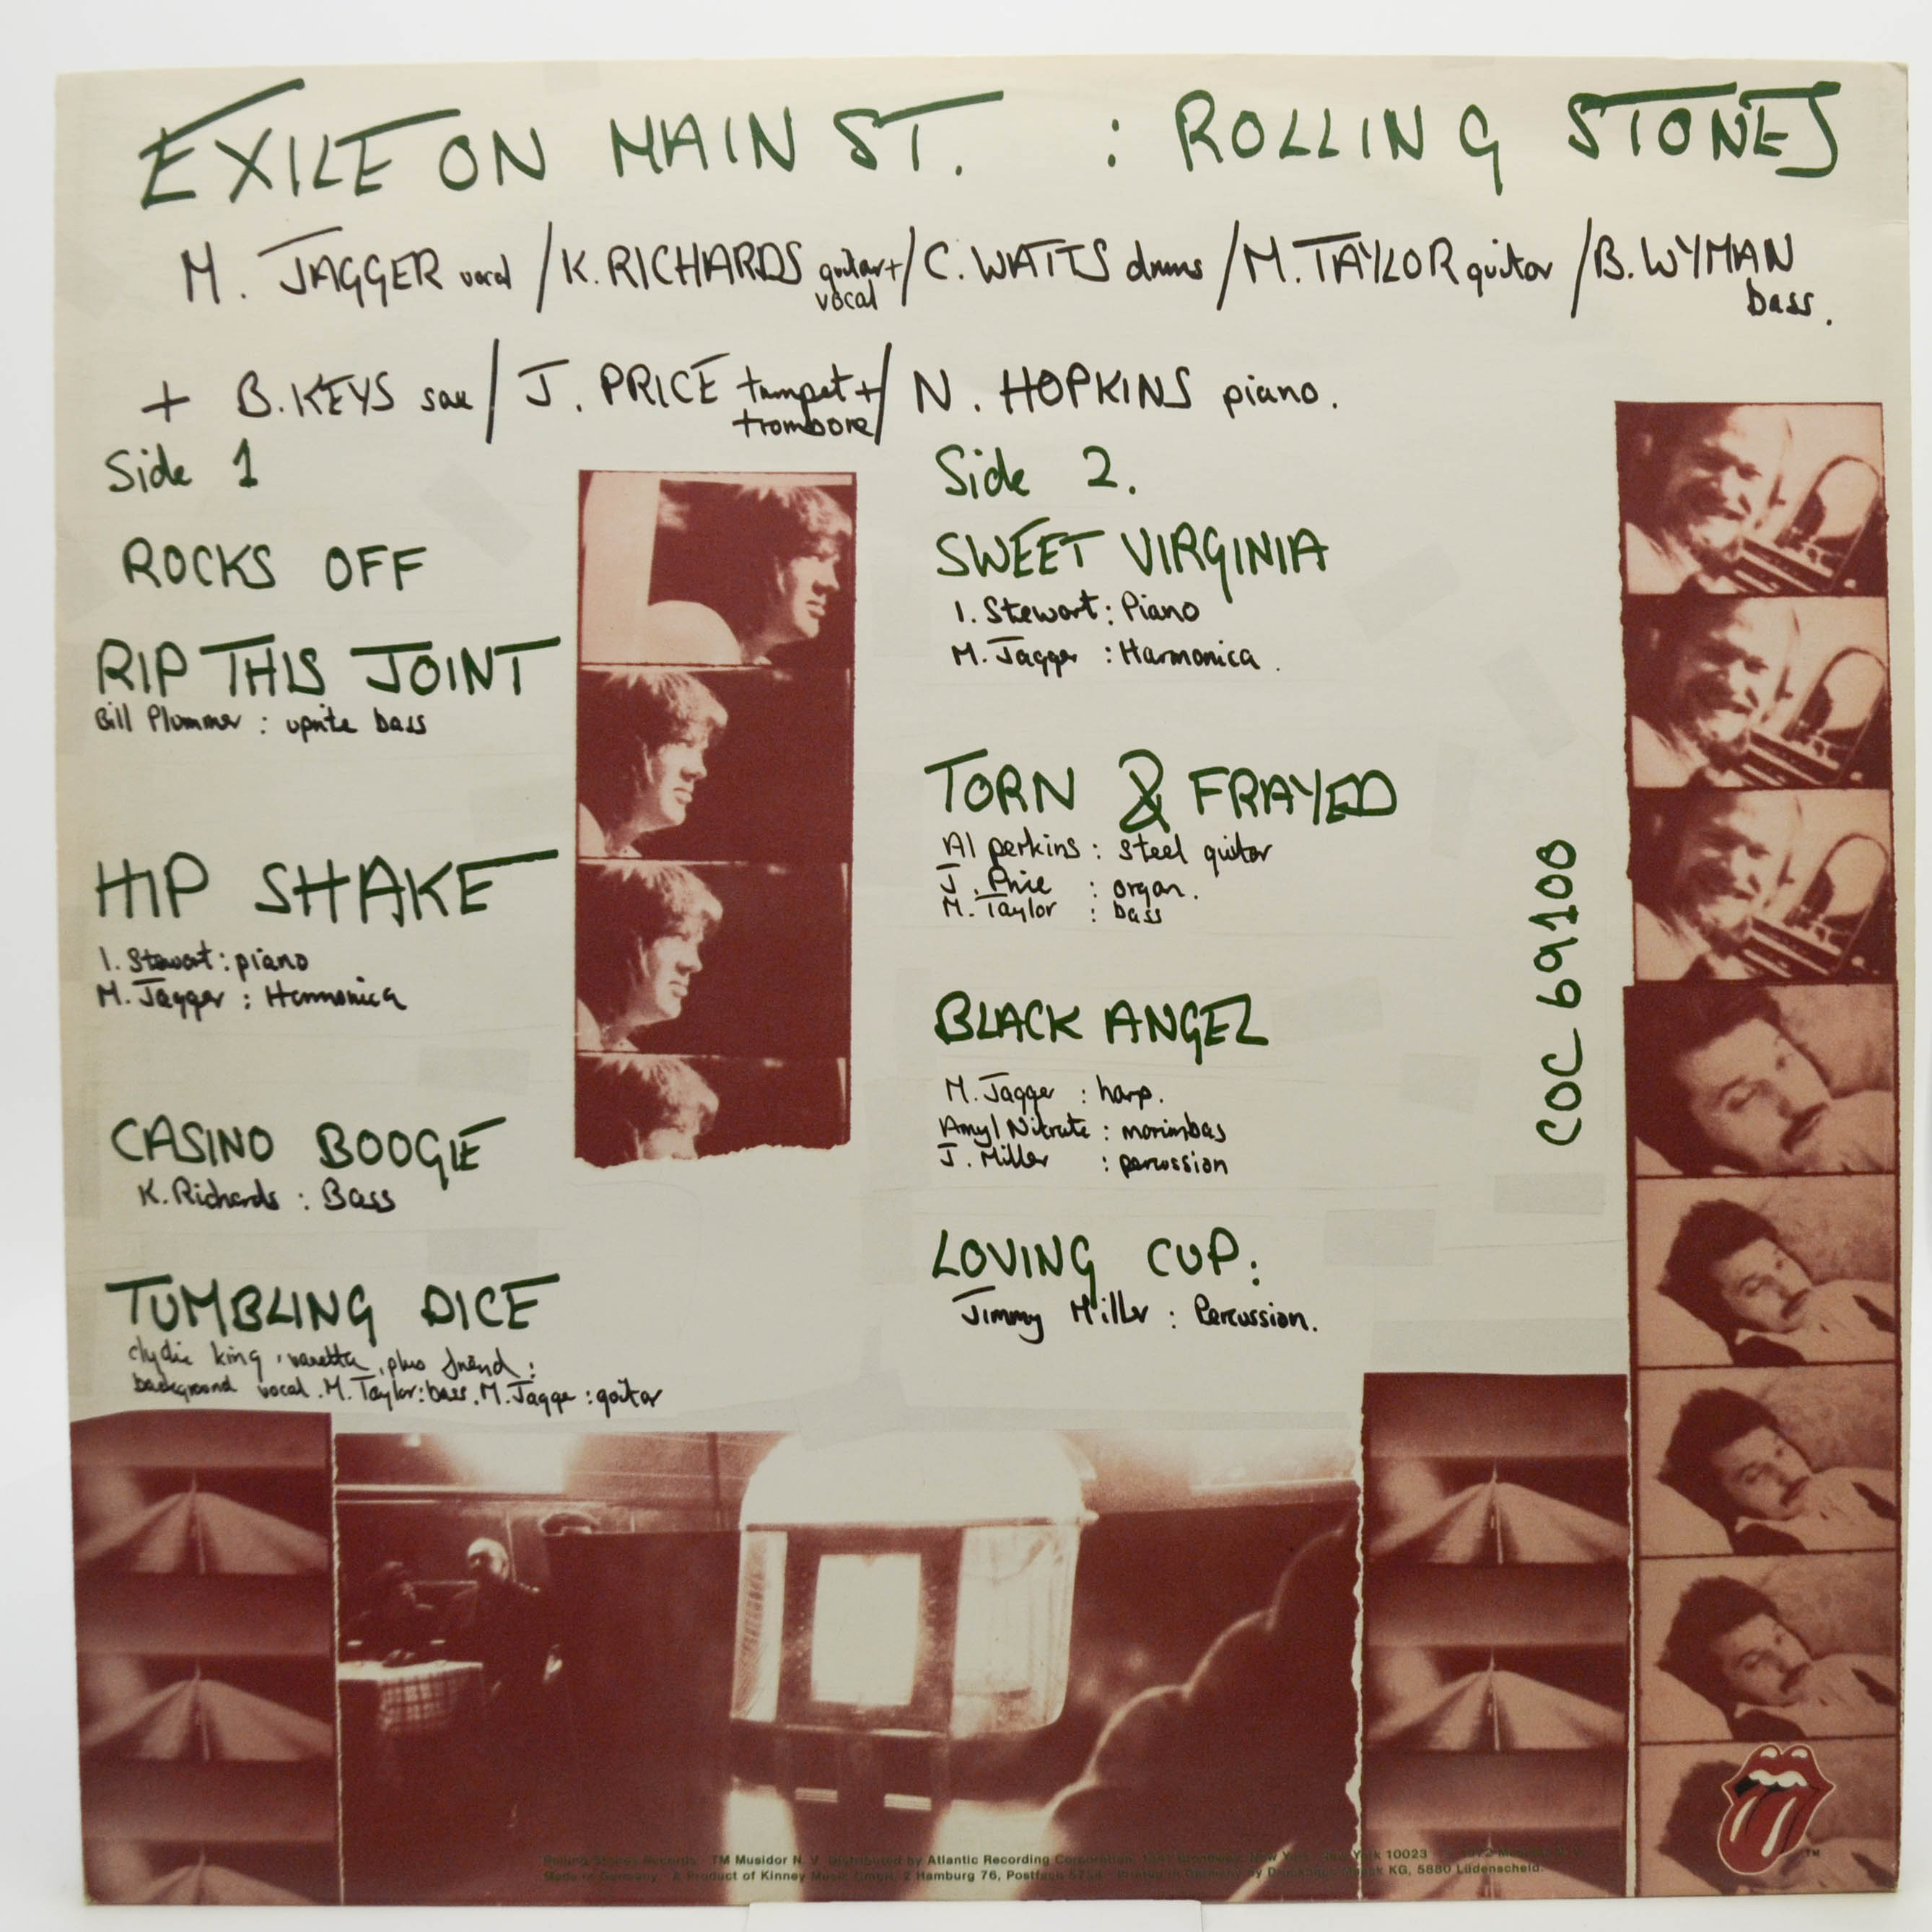 EXILE ON MAIN ST. : ROLLING STONES
M. JAGGER vocal / K. RICHARDS guitar + vocal / C. WATTS drums / M. TAYLOR guitar / B. WYMAN bass.
+ B. KEYS sax / J. PRICE trumpet + trombone / N. HOPKINS piano.
Side 1
ROCKS OFF
RIP THIS JOINT
Bill Plummer : uprite bass
HIP SHAKE
I. Stewart : piano
M. Jagger : Harmonica
CASINO BOOGIE
K. Richards : Bass
TUMBLING DICE
clydie king, vanetta, plus friend :
background vocal. M. Taylor: bass. M. Jagger : guitar
Side 2.
SWEET VIRGINIA
I. Stewart : Piano
M. Jagger : Harmonica.
TORN & FRAYED
Al perkins : steel guitar
J. Price : organ.
M. Taylor : bass
BLACK ANGEL
M. Jagger : harp.
Amyl Nitrate : marimbas
J. Miller : percussion
LOVING CUP:
Jimmy Miller : Percussion.
COC 69100
Rolling Stones Records TM Musidor N. V. Distributed by Atlantic Recording Corporation, 1841 Broadway, New York, New York 10023
Made in Germany A Product of Kinney Music GmbH, 2 Hamburg 76, Postfach Printed in Germany by KG, 5880 Lüdenscheid.
TM